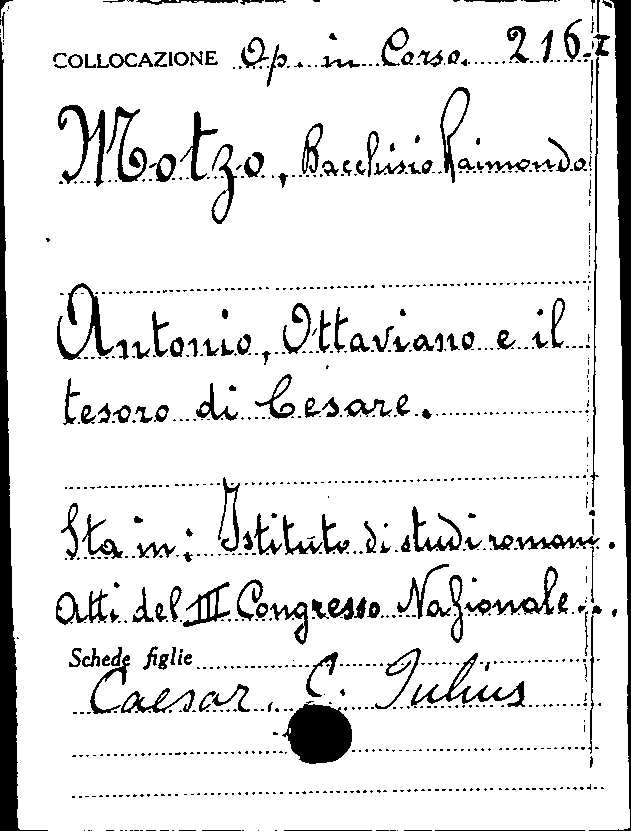 COLLOCAZIONE Op. in Corso. 216.I
Motzo, Bacchisio Raimondo
Antonio, Ottaviano e il
tesoro di Cesare.
Sta in: Istituto di studi romani.
Atti del III Congresso Nazionale...
Schede figlie
Caesar, C. Iulius